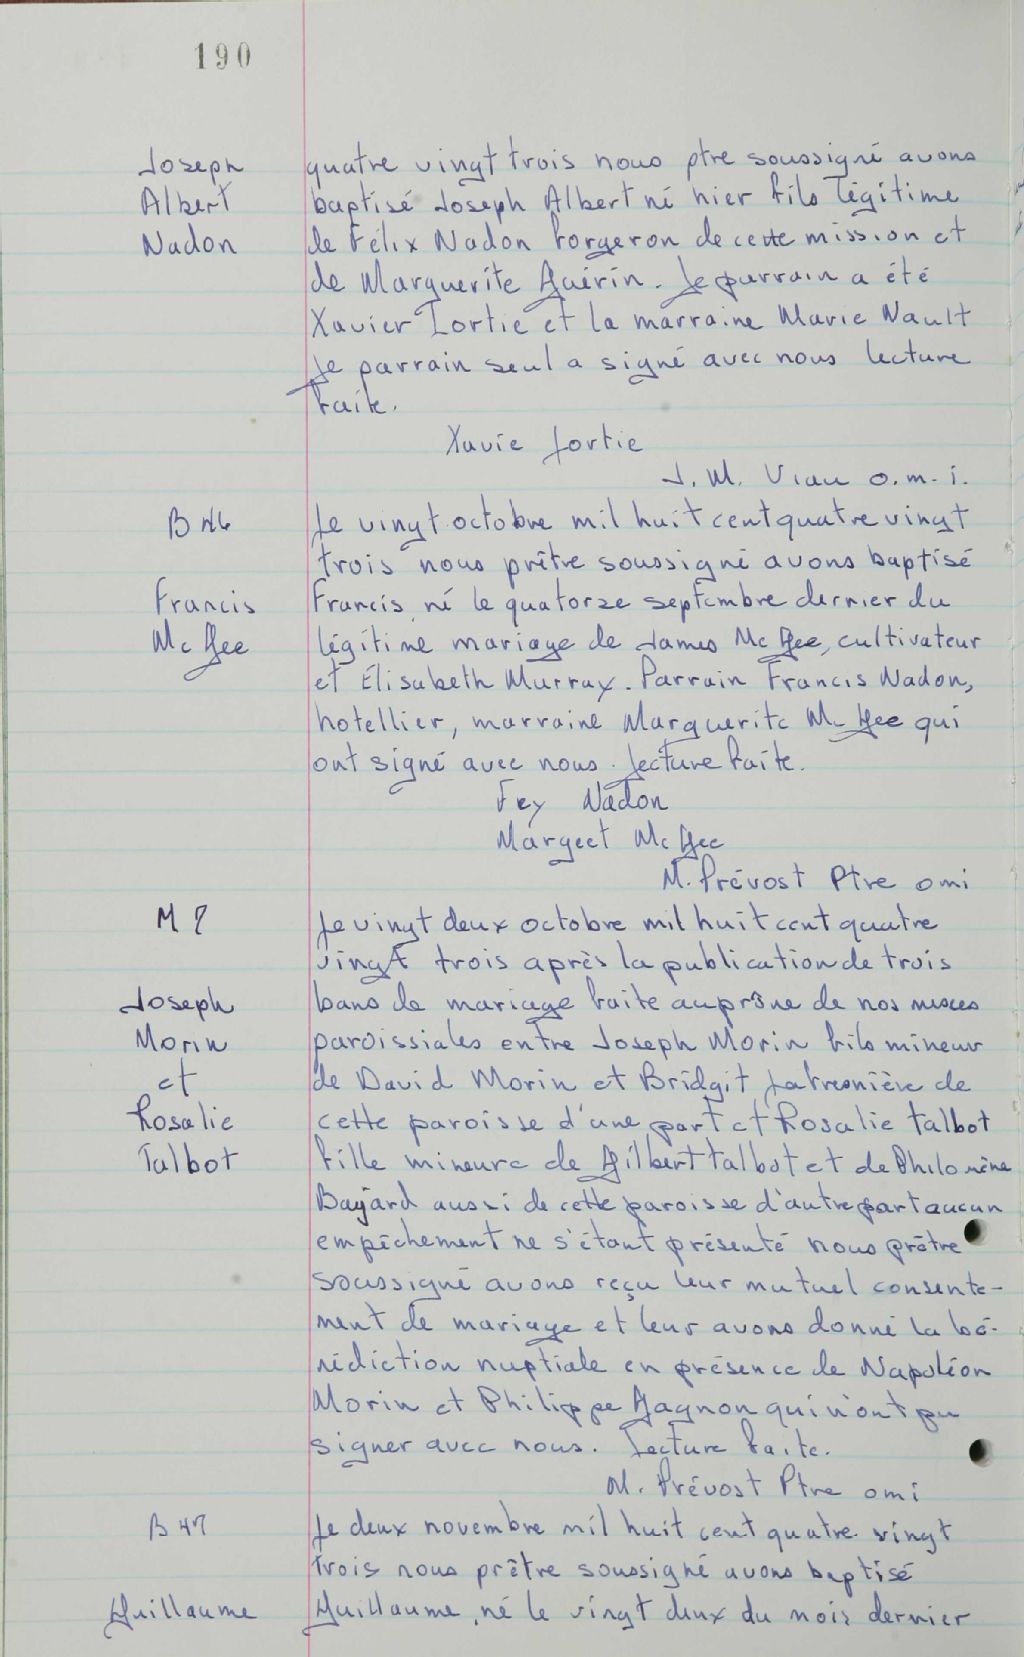 190
Joseph
Albert
Nadon
quatre vingt trois nous ptre soussigné avons
baptisé Joseph Albert né hier fils légitime
de Félix Nadon forgeron de cette mission et
de Marguerite Guérin. Le parrain a été
Xavier Lortie et la marraine Marie Nault
Le parrain seul a signé avec nous lecture
faite.
Xavie Lortie
J. M. Viau o.m.i.
B 46
Francis
Mc Gee
Le vingt octobre mil huit cent quatre vingt
trois nous prêtre soussigné avons baptisé
Francis, né le quatorze septembre dernier du
légitime mariage de James Mc Gee, cultivateur
et Élisabeth Murray. Parrain Francis Nadon,
hotellier, marraine Marguerite Mc Gee qui
ont signé avec nous. Lecture faite.
Fey Nadon
Margeet Mc Gee
M. Prévost Ptre omi
M 7
Joseph
Morin
et
Rosalie
Talbot
Le vingt deux octobre mil huit cent quatre
vingt trois après la publication de trois
bans de mariage faite au prône de nos messes
paroissiales entre Joseph Morin fils mineur
de David Morin et Bridgit Lafresnière de
cette paroisse d'une part et Rosalie Talbot
fille mineure de Gilbert Talbot et de Philomène
Bayard aussi de cette paroisse d'autre part aucun
empêchement ne s'étant présenté nous prêtre
soussigné avons reçu leur mutuel consente-
ment de mariage et leur avons donné la bé-
nédiction nuptiale en présence de Napoléon
Morin et Philippe Gagnon qui n'ont pu
signer avec nous. Lecture faite.
M. Prévost Ptre omi
B 47
Guillaume
Le deux novembre mil huit cent quatre vingt
trois nous prêtre soussigné avons baptisé
Guillaume, né le vingt deux du mois dernier